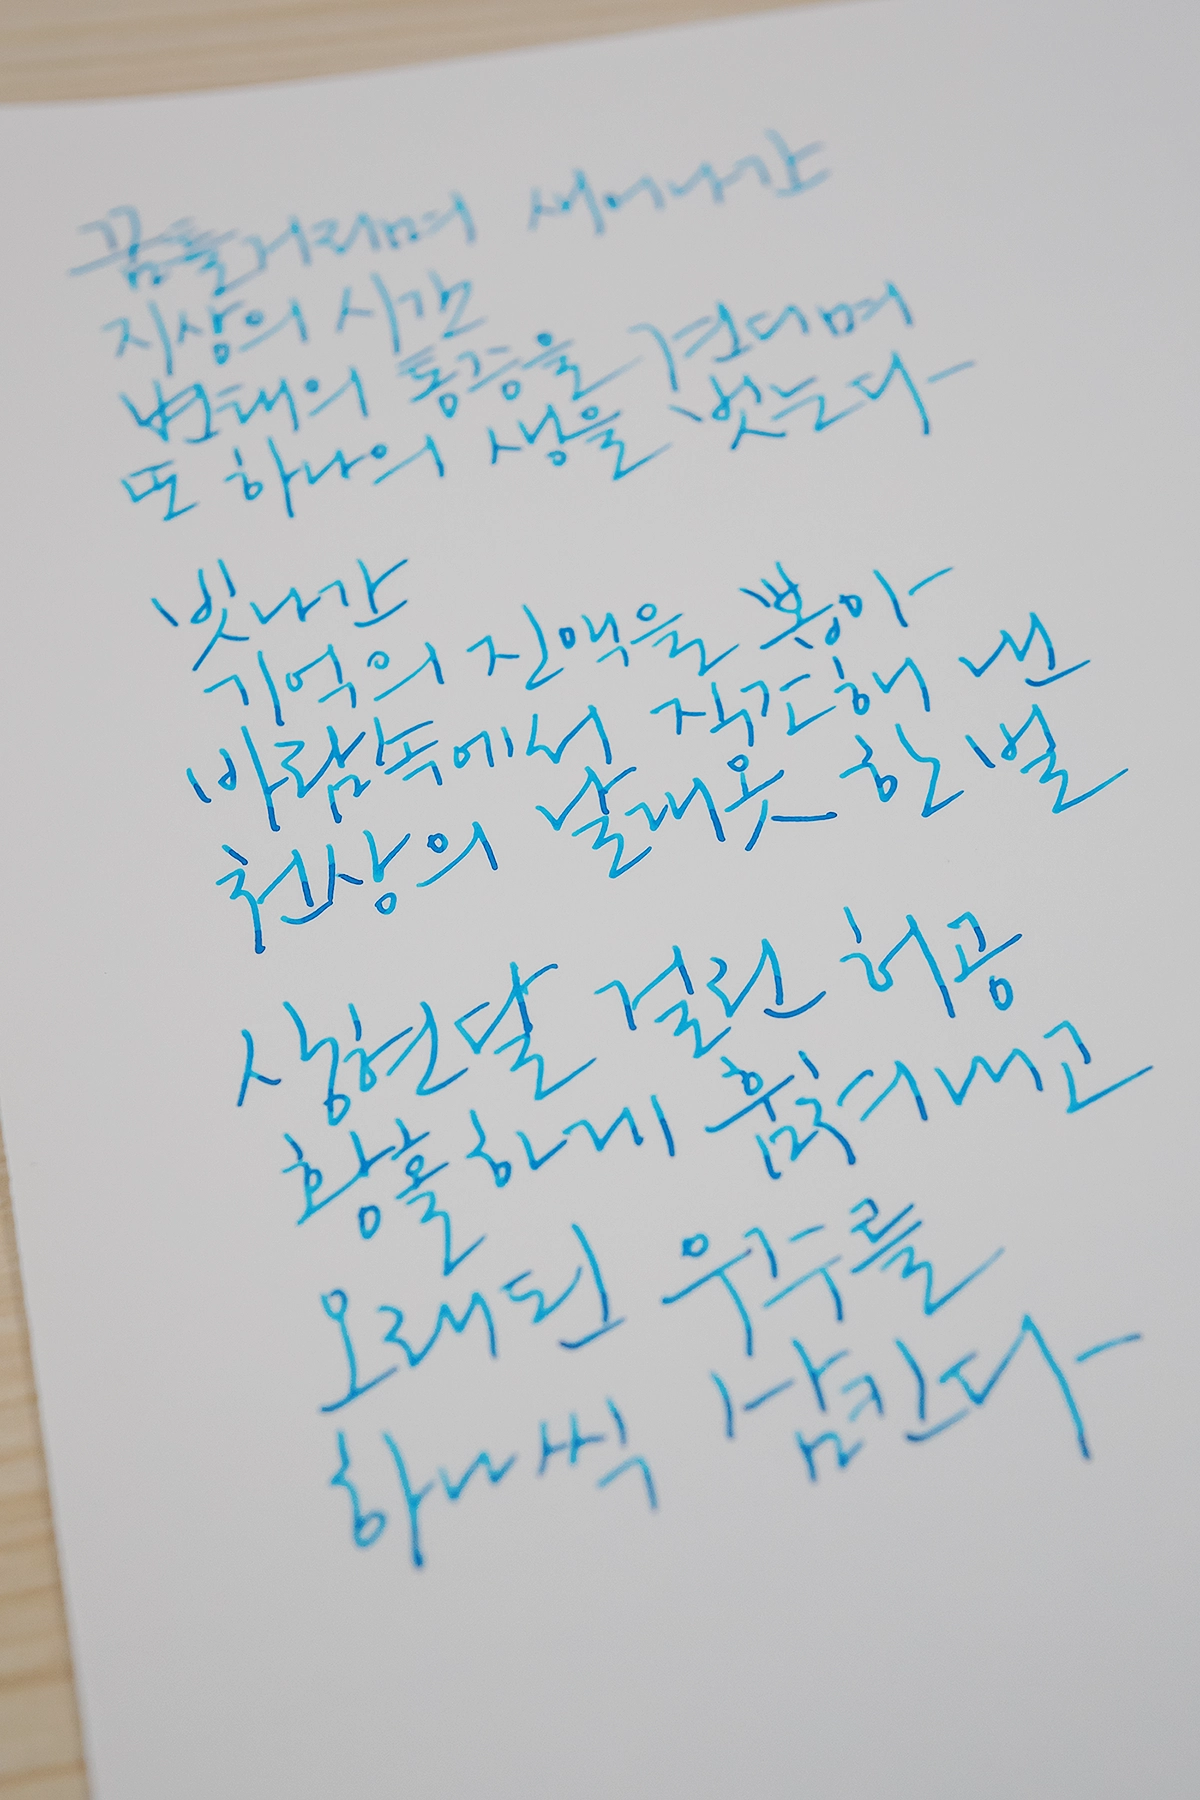 꿈틀거리며 새어나간
지상의 시간
변태의 통증을 견디며
또 하나의 생을 벗는다
빗나간
기억의 진액을 뽑아
바람속에서 직조해 낸
천상의 날개옷 한 벌
상현달 걸린 허공
황홀하게 훔쳐내고
오래된 우수를
하나씩 삼킨다